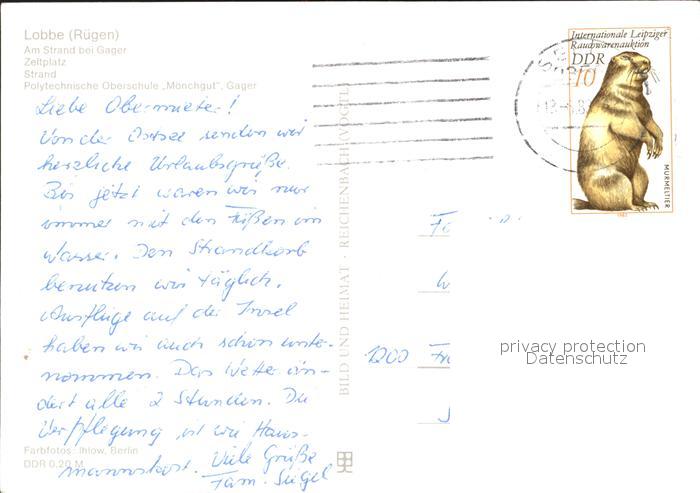 Lobbe (Rügen)
Am Strand bei Gager
Zeltplatz
Strand
Polytechnische Oberschule „Mönchgut", Gager
Liebe Obermieter!
Von der Ostsee senden wir
herzliche Urlaubsgrüße.
Bis jetzt waren wir nur
immer mit den Füßen im
Wasser. Den Strandkorb
benutzen wir täglich.
Ausflüge auf der Insel
haben wir auch schon unter-
nommen. Das Wetter än-
dert alle 2 Stunden. Die
Verpflegung ist wie Haus-
mannskost. Viele Grüße
Fam. Siegel
Farbfotos: Ihlow, Berlin
DDR 0,20 M
BILD UND HEIMAT · REICHENBACH (VOGTL
Internationale Leipziger
Rauchwarenauktion
DDR
10
MURMELTIER
1982
1200 Fr
privacy protection
Datenschutz